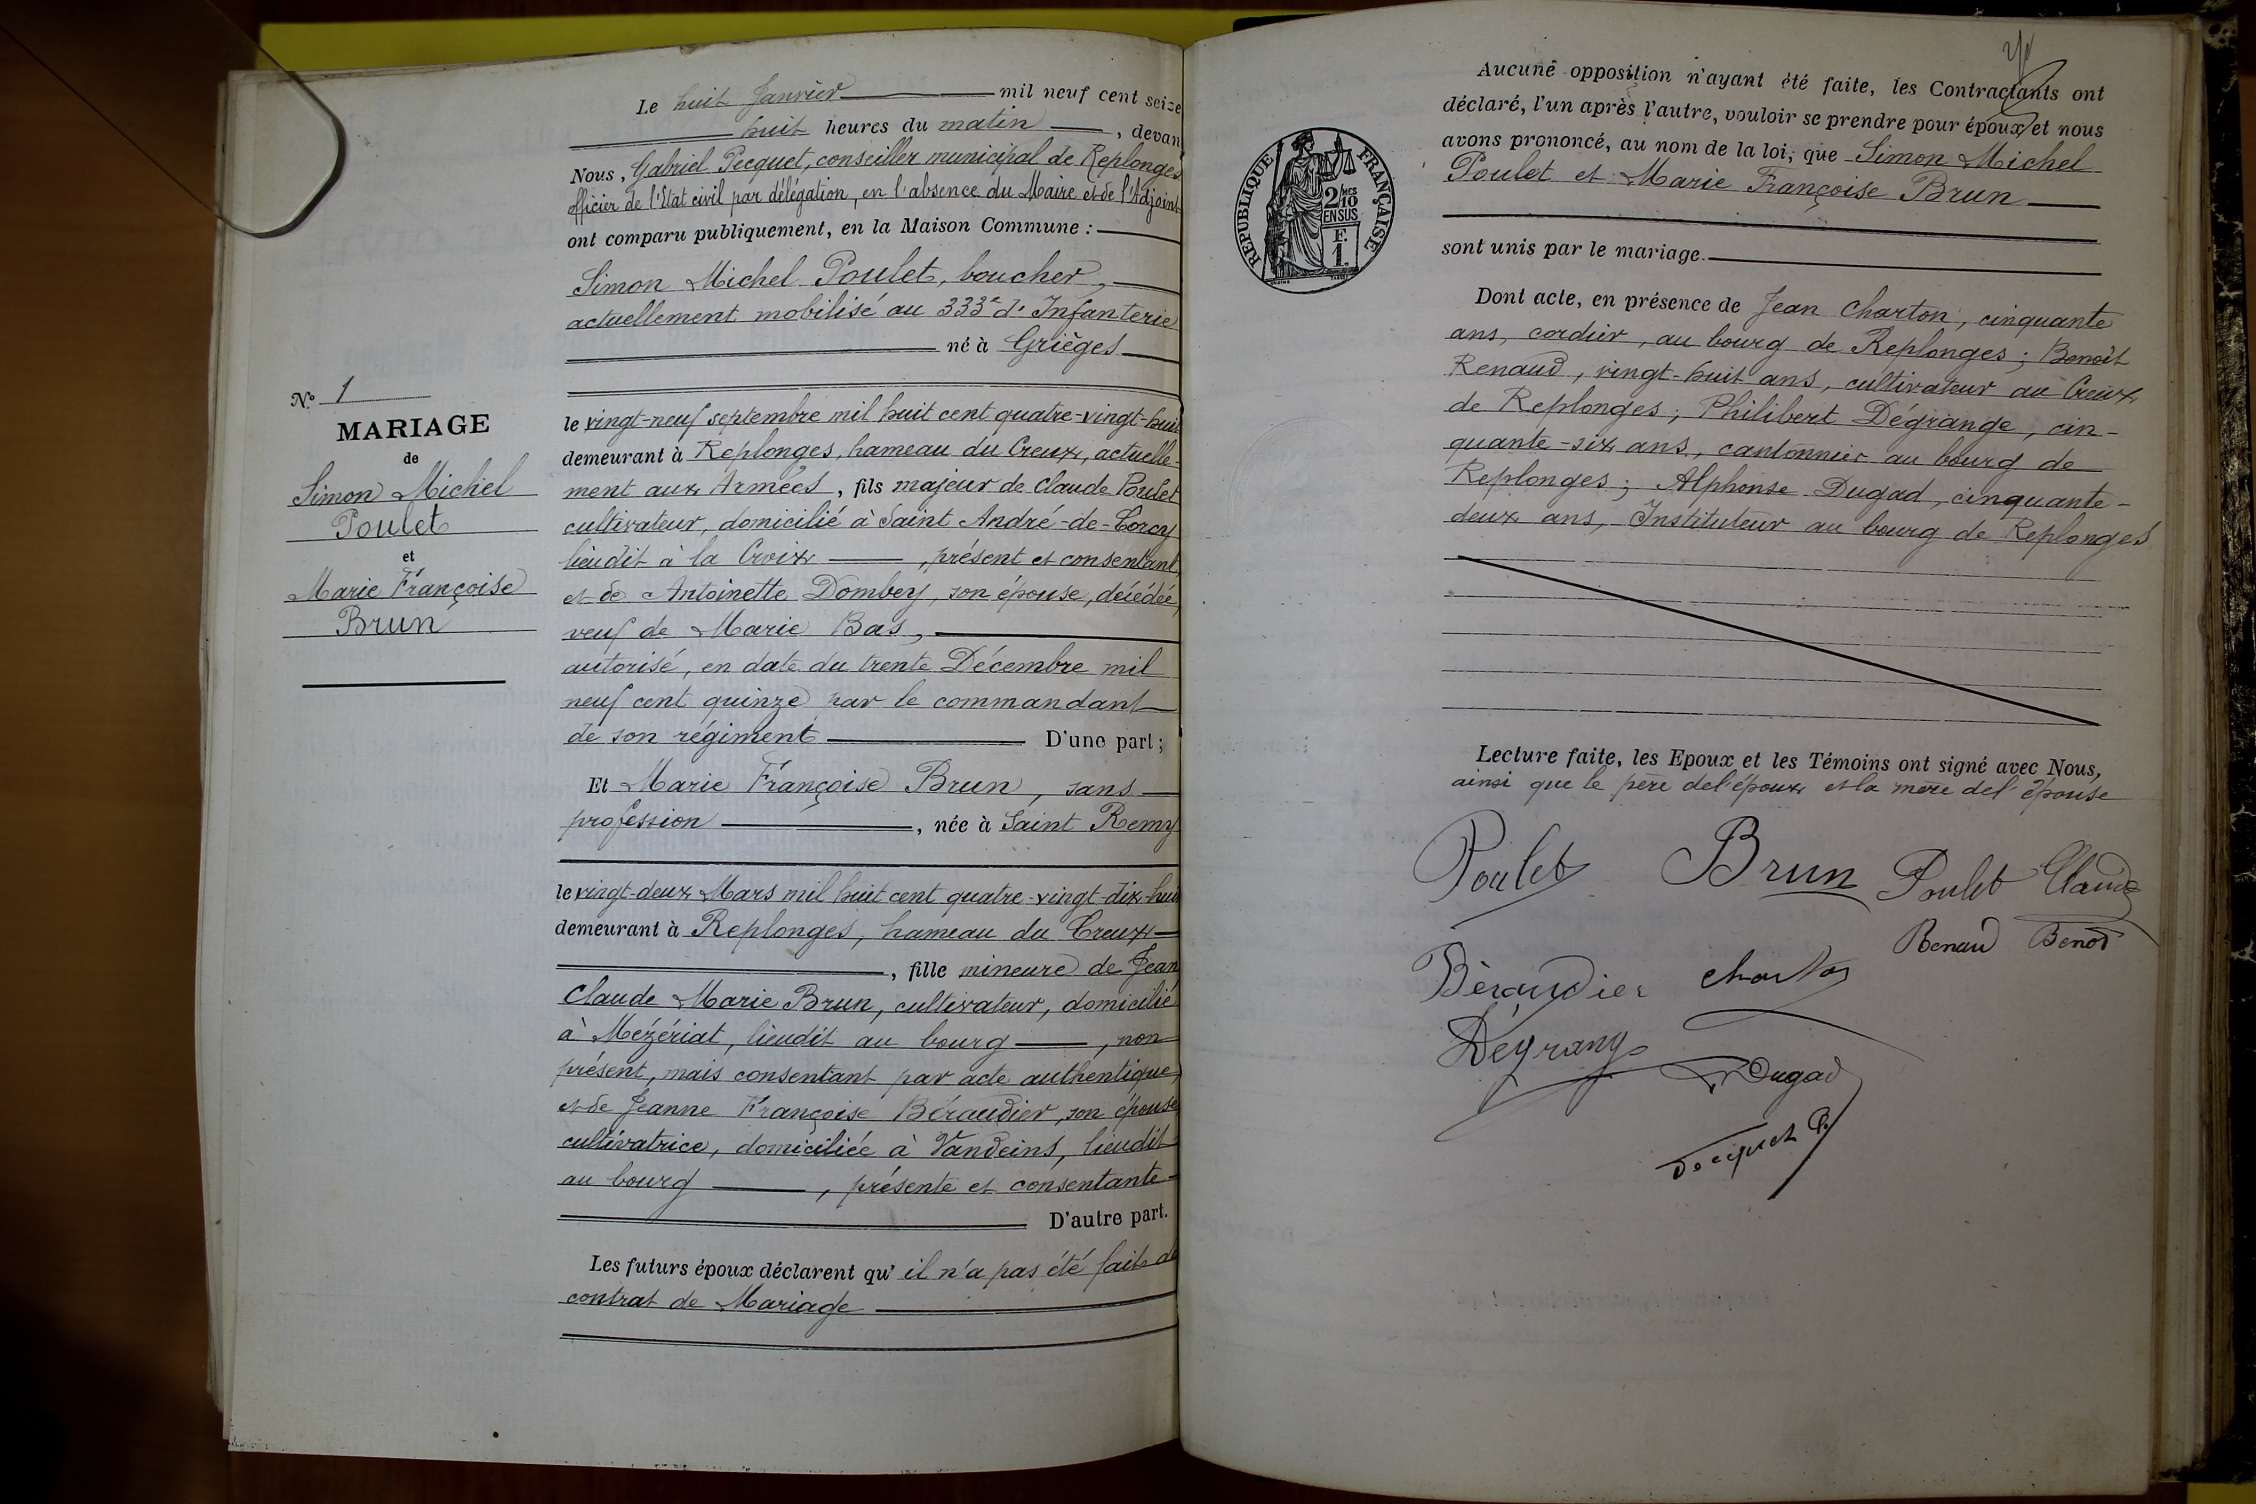 N° 1
MARIAGE
de
Simon Michel
Poulet
et
Marie Françoise
Brun
Le huit Janvier mil neuf cent seize
huit heures du matin, devan
Nous, Gabriel Pecquet, conseiller municipal de Replonges
officier de l'Etat civil par délégation, en l'absence du Maire et de l'Adjoint
ont comparu publiquement, en la Maison Commune :
Simon Michel Poulet, boucher,
actuellement mobilisé au 333e d'Infanterie
né à Grièges
le vingt-neuf septembre mil huit cent quatre-vingt-huit
demeurant à Replonges, hameau du Creux, actuelle-
ment aux Armées, fils majeur de Claude Poulet
cultivateur, domicilié à Saint André-de-Corcy
lieudit à la Croix, présent et consentant,
et de Antoinette Dombey, son épouse, décédée,
veuf de Marie Bas,
autorisé, en date du trente Décembre mil
neuf cent quinze par le commandant
de son régiment D'une part ;
Et Marie Françoise Brun, sans
profession, née à Saint Remy
le vingt-deux Mars mil huit cent quatre-vingt-dix-huit
demeurant à Replonges, hameau du Creux
, fille mineure de Jean
Claude Marie Brun, cultivateur, domicilié
à Mézériat, lieudit au bourg, non
présent, mais consentant par acte authentique,
et de Jeanne Françoise Béraudier, son épouse
cultivatrice, domiciliée à Vandeins, lieudit
au bourg, présente et consentante
D'autre part.
Les futurs époux déclarent qu'il n'a pas été fait de
contrat de Mariage
Aucune opposition n'ayant été faite, les Contractants ont
déclaré, l'un après l'autre, vouloir se prendre pour époux et nous
avons prononcé, au nom de la loi, que Simon Michel
Poulet et Marie Françoise Brun
sont unis par le mariage.
REPUBLIQUE FRANÇAISE
2/10 MES
EN SUS
F.
1.
Dont acte, en présence de Jean Charton, cinquante
ans, cordier, au bourg de Replonges ; Benoît
Renaud, vingt-huit ans, cultivateur au Creux
de Replonges ; Philibert Dégrange, cin-
quante-six ans, cantonnier au bourg de
Replonges ; Alphonse Dugad, cinquante-
deux ans, Instituteur au bourg de Replonges
Lecture faite, les Epoux et les Témoins ont signé avec Nous,
ainsi que le père de l'époux et la mère de l'épouse
Poulet Brun Poulet Claude
Renaud Benoi
Béraudier Charton
Dégrange
Dugad
Pecquet G.